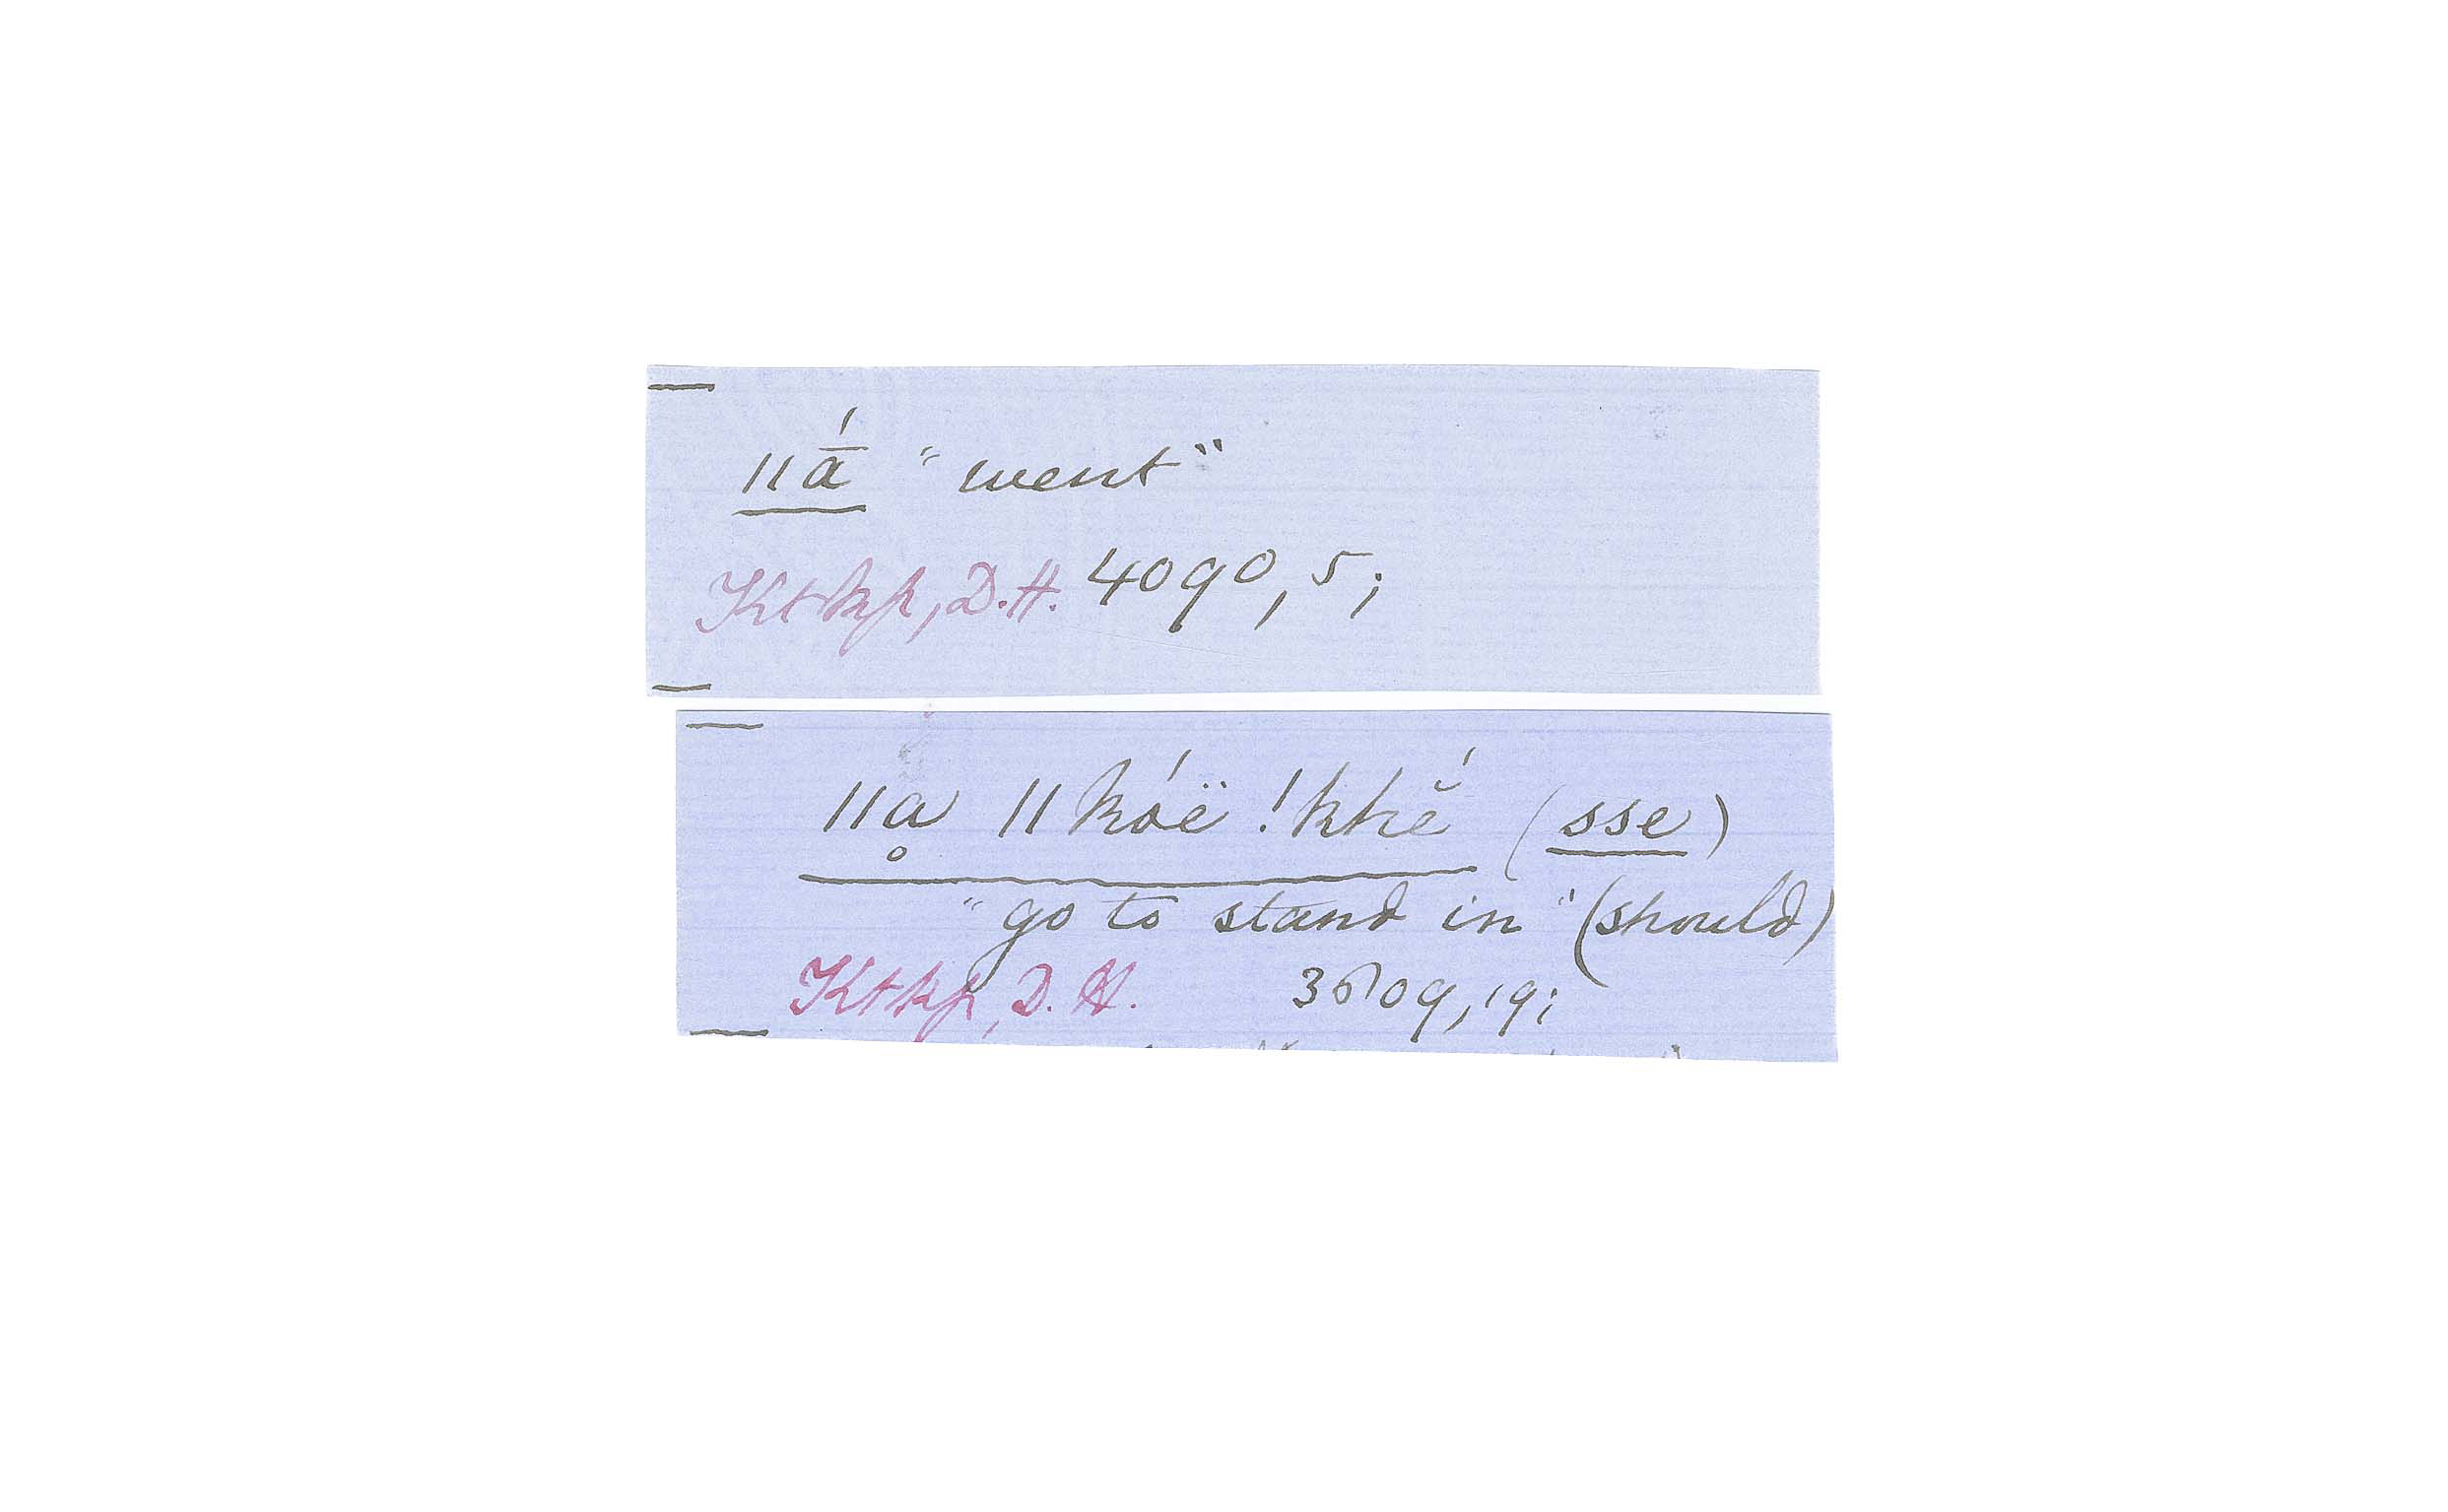 ǁā́ "went"
Ktkp, D.H. 4090, 5;
ǁḁ ǁkóë !khĕ́ (sse)
"go to stand in" (should)
Ktkp, D.H. 3609, 19;